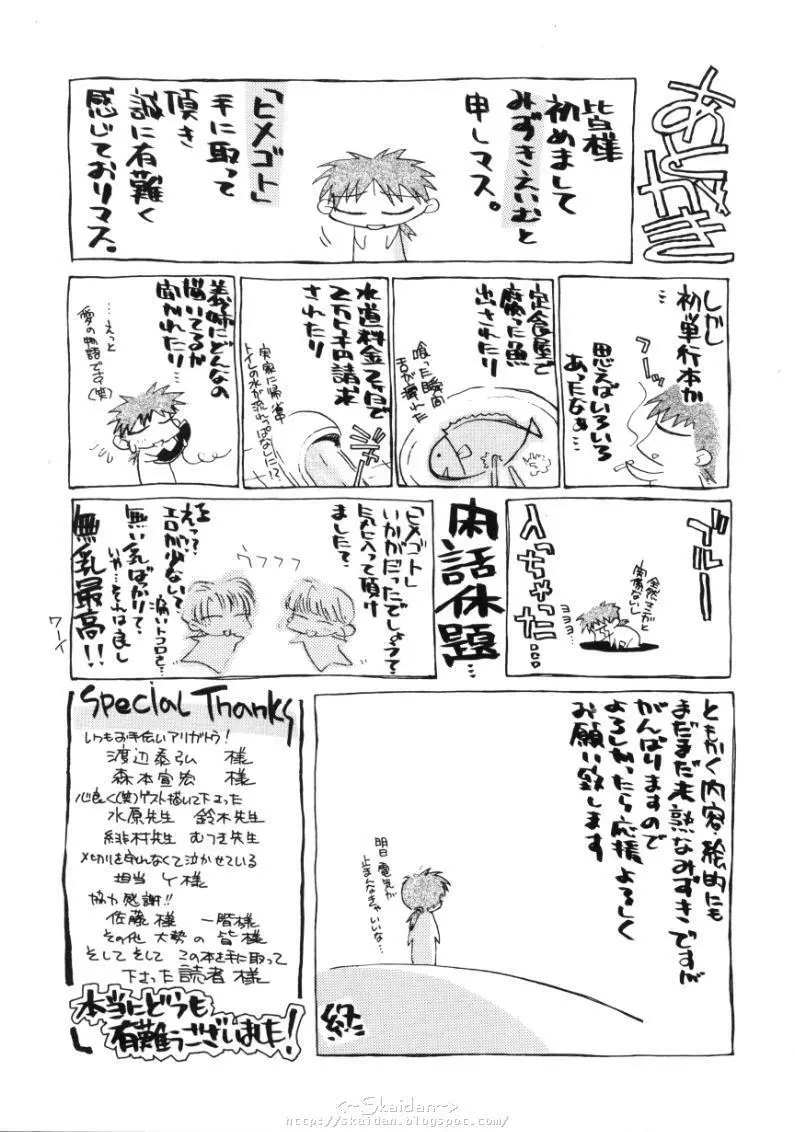 あとがき
皆様
初めまして
みずきえいむと
申しマス。
「ヒメゴト」
手に取って
頂き
誠に有難く
感じておりマス。
しかし
初単行本か
…
思えばいろいろ
あったなぁ…
フーッ
定食屋で
腐った魚
出されたり
喰った瞬間
舌が痺れた
水道料金2ヶ月で
2万5千円請求
されたり
実家に帰省中
トイレの水が流れっぱなしに!?
義姉にどんなの
描いてるか
聞かれたり…
…えっと
愛の物語です(笑)
ブルーー
入っちゃった…
全然マンガと
関係ないし
ヨヨヨ…
閑話休題…
「ヒメゴト」
いかがだったでしょうか?
気に入って頂け
ましたで…
ウフフフ
え?
えっ?
エロが少ない?
痛いトコロを…
無い乳ばっかりで?
いや…それは良し
無乳最高!!
ワーイ
ともかく内容・絵的にも
まだまだ未熟なみずきですが
がんばりますので
よろしかったら応援よろしく
お願い致します
明日 電気が
止まんなきゃいいな…
終
Special Thanks
いつもお手伝いアリガトう!
渡辺泰弘 様
森本宣宏 様
心良く(笑)ゲスト描いて下さった
水原先生 鈴木先生
緋村先生 むつき先生
〆切りを守れなくて泣かせている
担当 Y様
協力感謝!!
佐藤様 一階様
その他 大勢の 皆様
そして そして この本を手に取って
下さった読者様
本当にどうも
有難うございました!
<-~Skaidan~->
http://skaidan.blogspot.com/